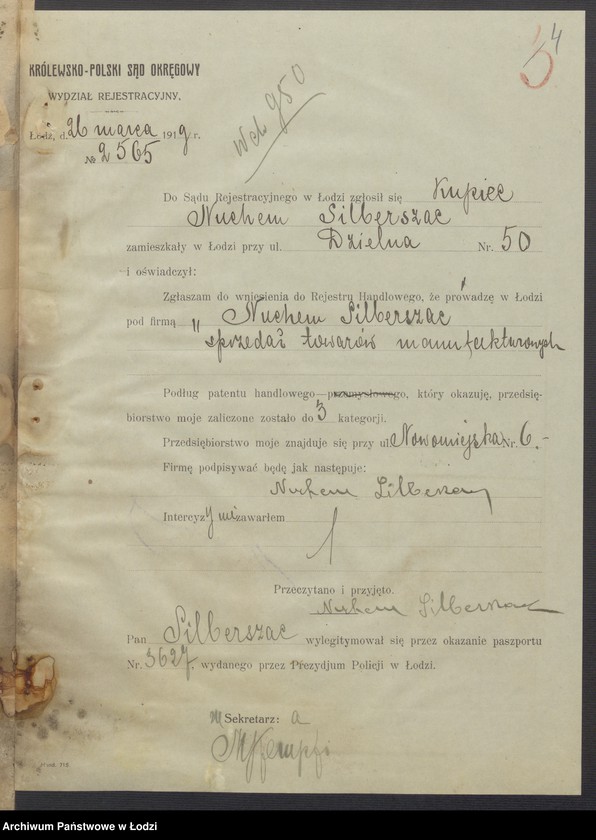 4
5
KRÓLEWSKO-POLSKI SĄD OKRĘGOWY
WYDZIAŁ REJESTRACYJNY.
Łódź, d. 26 marca 1919 r.
№ 2565
950
Do Sądu Rejestracyjnego w Łodzi zgłosił się Kupiec
Nuchem Silberszac
zamieszkały w Łodzi przy ul. Dzielna Nr. 50
i oświadczył:
Zgłaszam do wniesienia do Rejestru Handlowego, że prowadzę w Łodzi
pod firmą „ Nuchem Silberszac
sprzedaż towarów manufakturowych
Podług patentu handlowego—przemysłowego, który okazuję, przedsię-
biorstwo moje zaliczone zostało do 3 kategorji.
Przedsiębiorstwo moje znajduje się przy ul. Nowomiejska Nr. 6.-
Firmę podpisywać będę jak następuje:
Nuchem Silberszac
Intercyzy nie zawarłem
Przeczytano i przyjęto.
Nuchem Silberszac
Pan Silberszac wylegitymował się przez okazanie paszportu
Nr. 3627. wydanego przez Prezydjum Policji w Łodzi.
Sekretarz:
Archiwum Państwowe w Łodzi